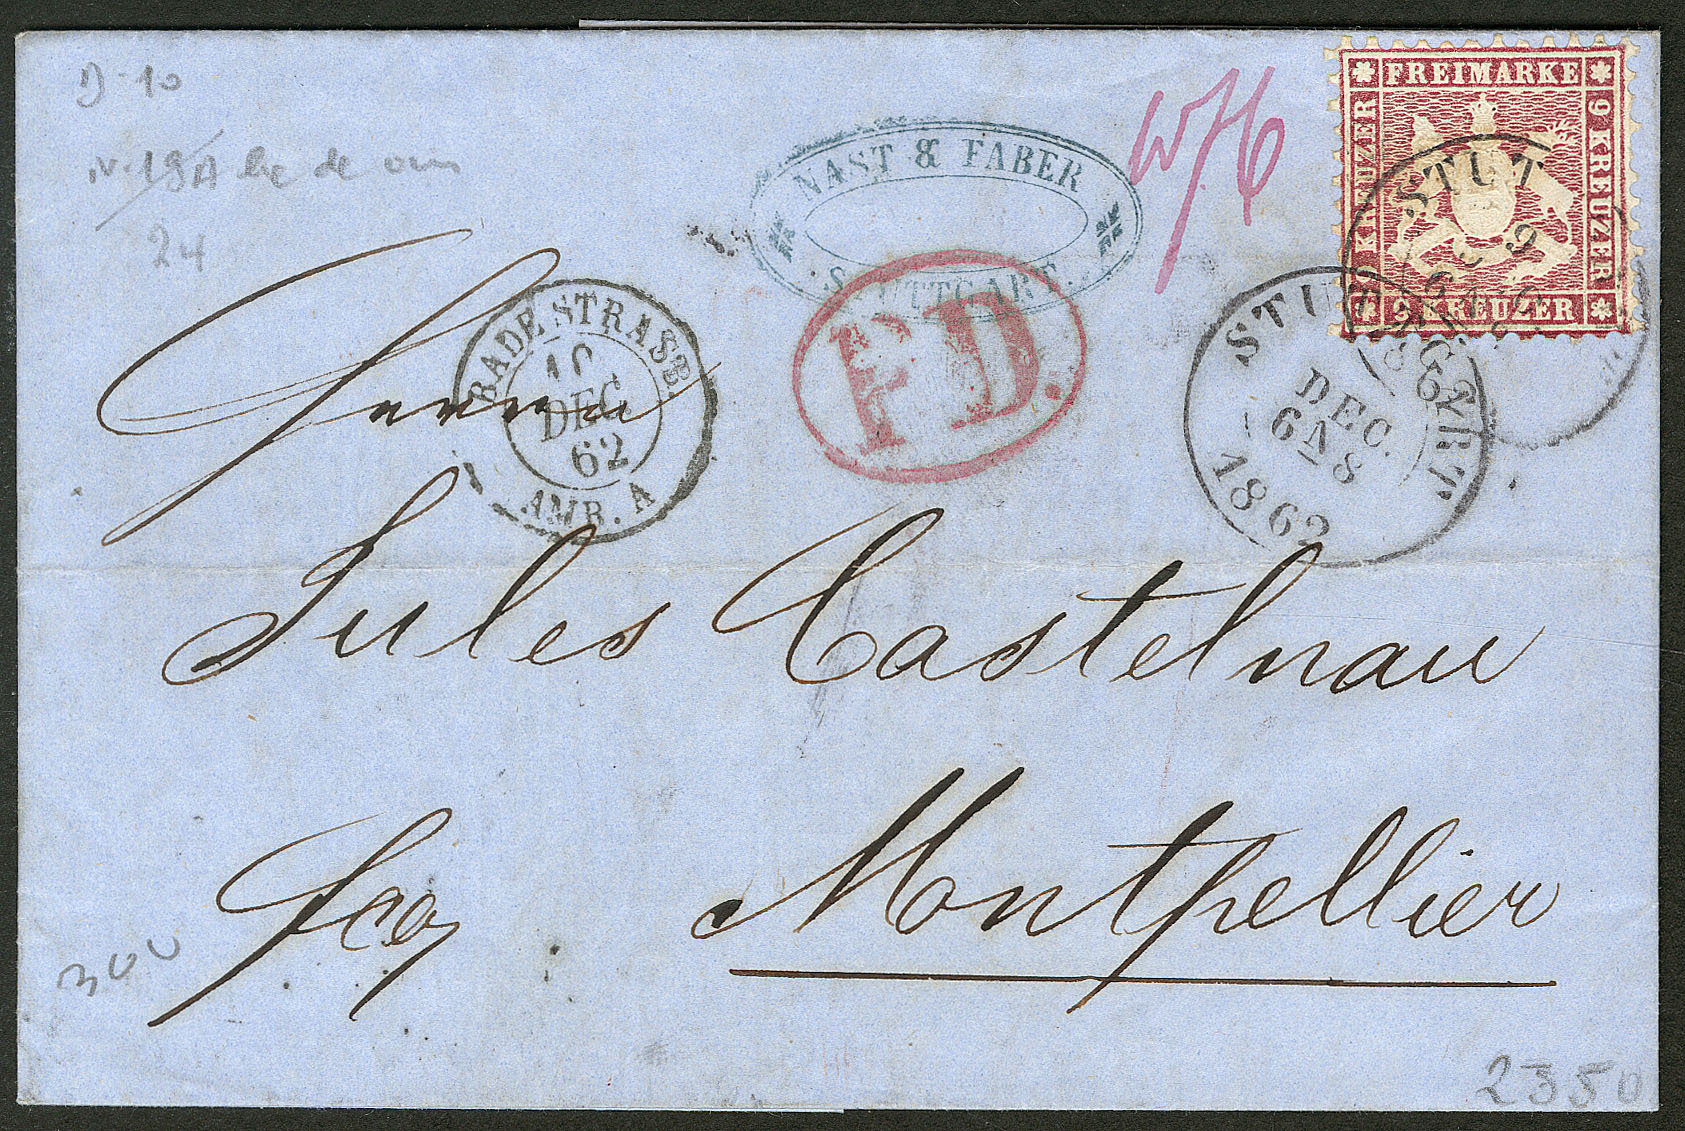 D-10
24
NAST & FABER
STUTTGART.
w/6
FREIMARKE
9 KREUZER
KREUZER
9 KREUZER
STUT
STUTTGART
DEC.
6 N 8
1862
BADE STRASB
10
DEC
62
AMB. A
P.D.
Jules Castelnau
fco
Montpellier
300
2350